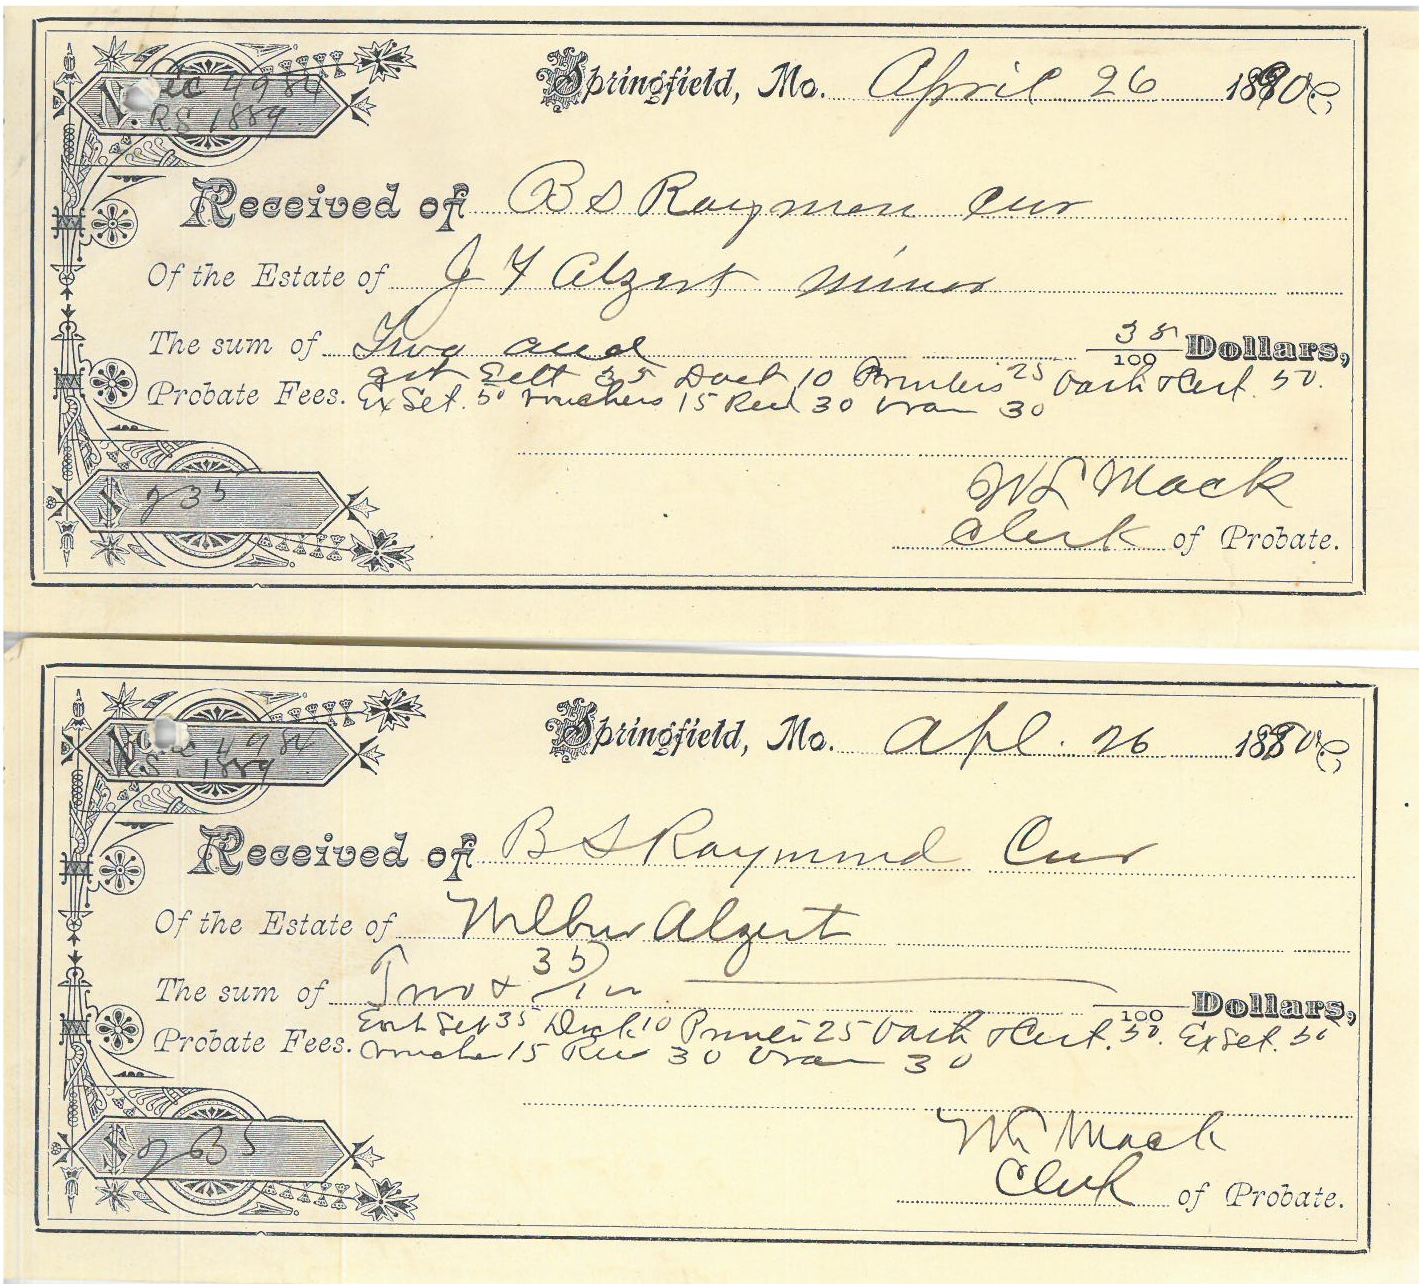 No. Sec 4984
RS 1889
Springfield, Mo. April 26 1890
Received of B S Raymon Cur
Of the Estate of J F Alzert Minor
The sum of Two and 35/100 Dollars,
Probate Fees. Sett 35 Dock 10 Printers 25 Oath & Cert. 50.
Ex Set. 50 Vouchers 15 Rec 30 30
$ 235
W L Mack
Clerk of Probate.
No 4984
S. 1889
Springfield, Mo. Apl. 26 1890
Received of B S Raymond Cur
Of the Estate of Wilbur Alzert
The sum of Two & 35/100 /100 Dollars,
Probate Fees. Set 35 Dock 10 Printer 25 Oath & Cert. 50. Ex Set. 50
Voucher 15 Rec 30 30
$ 235
W L Mack
Clerk of Probate.